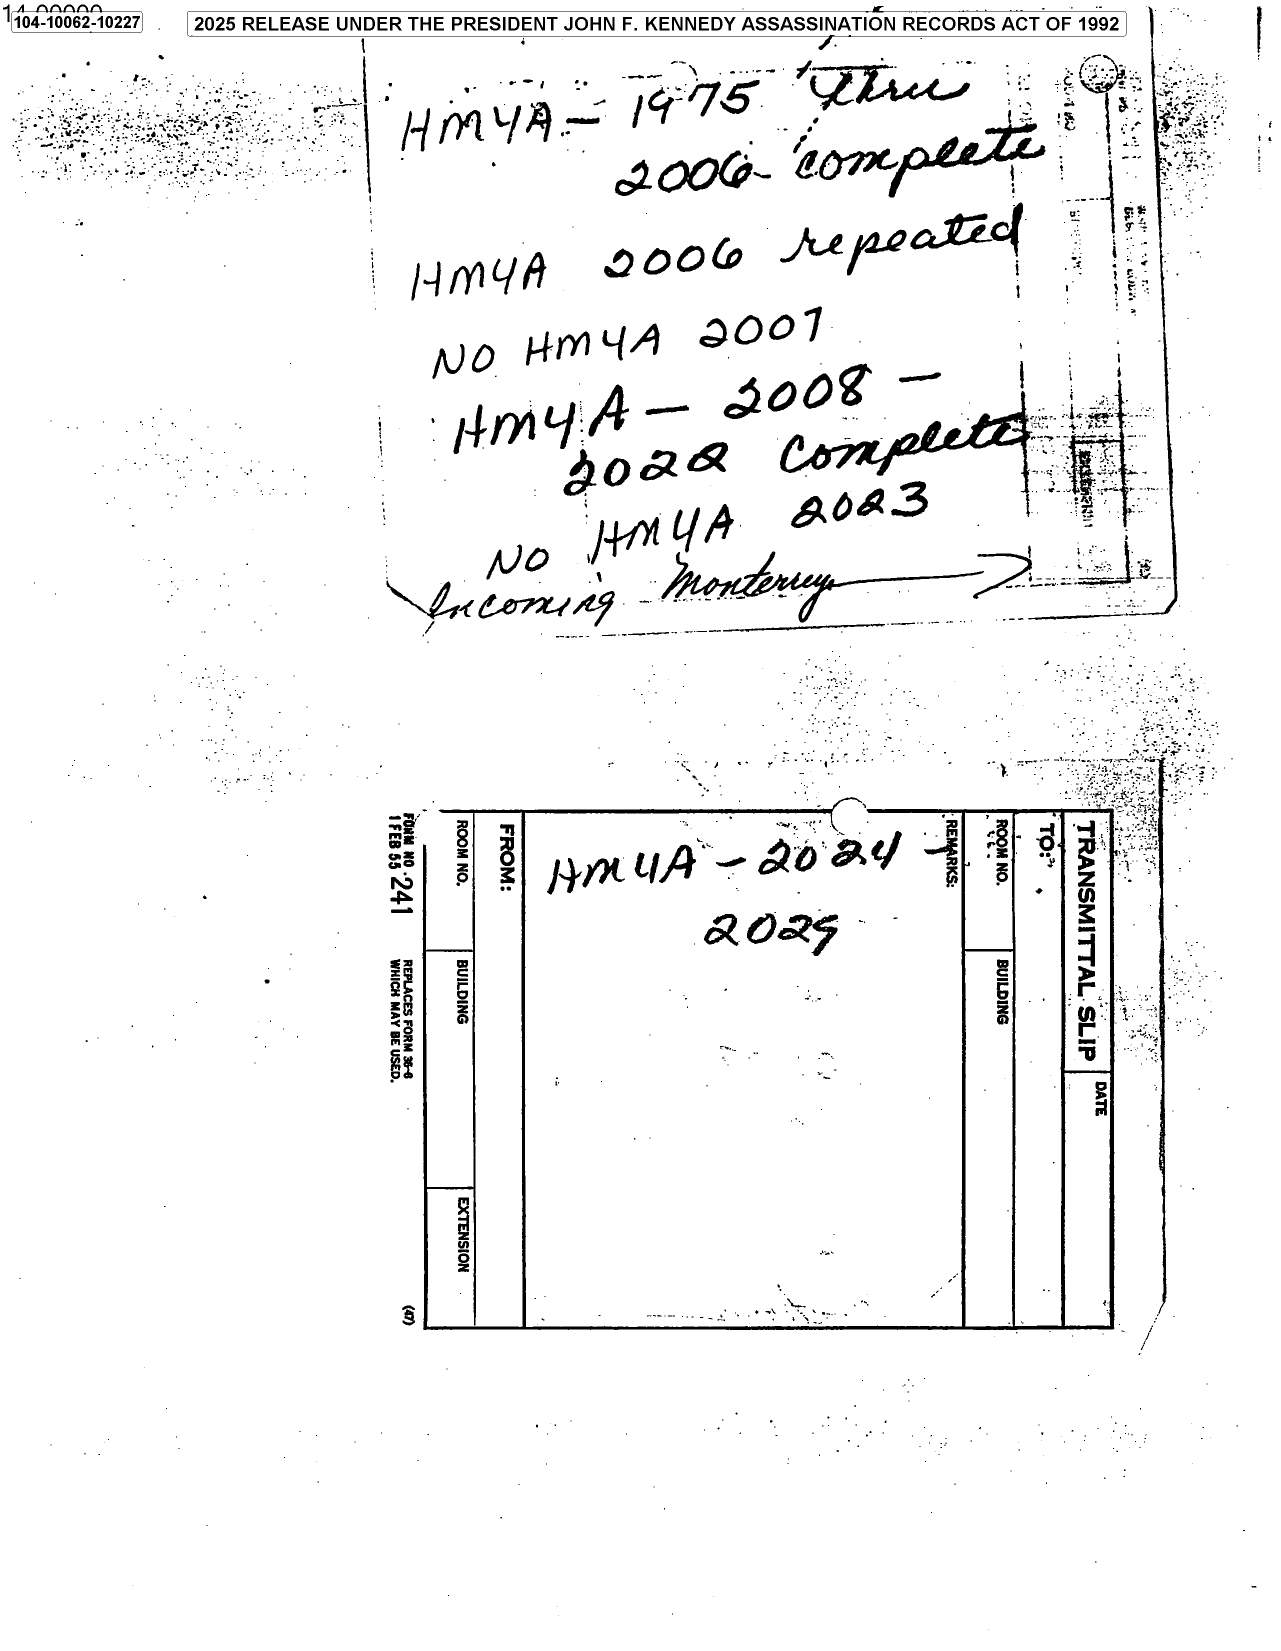 104-10062-10227
2025 RELEASE UNDER THE PRESIDENT JOHN F. KENNEDY ASSASSINATION RECORDS ACT OF 1992
HMYA - 1975 thru
2006 - complete
HMYA 2006 repeated
NO HMYA 2007
HMYA - 2008 -
2022 Complete
NO HMYA 2023
Incoming Monterrey
TRANSMITTAL SLIP
DATE
TO:
ROOM NO.
BUILDING
REMARKS:
HMYA - 2024 -
2029
FROM:
ROOM NO.
BUILDING
EXTENSION
FORM NO. 241
1 FEB 55
REPLACES FORM 36-8
WHICH MAY BE USED.
(47)